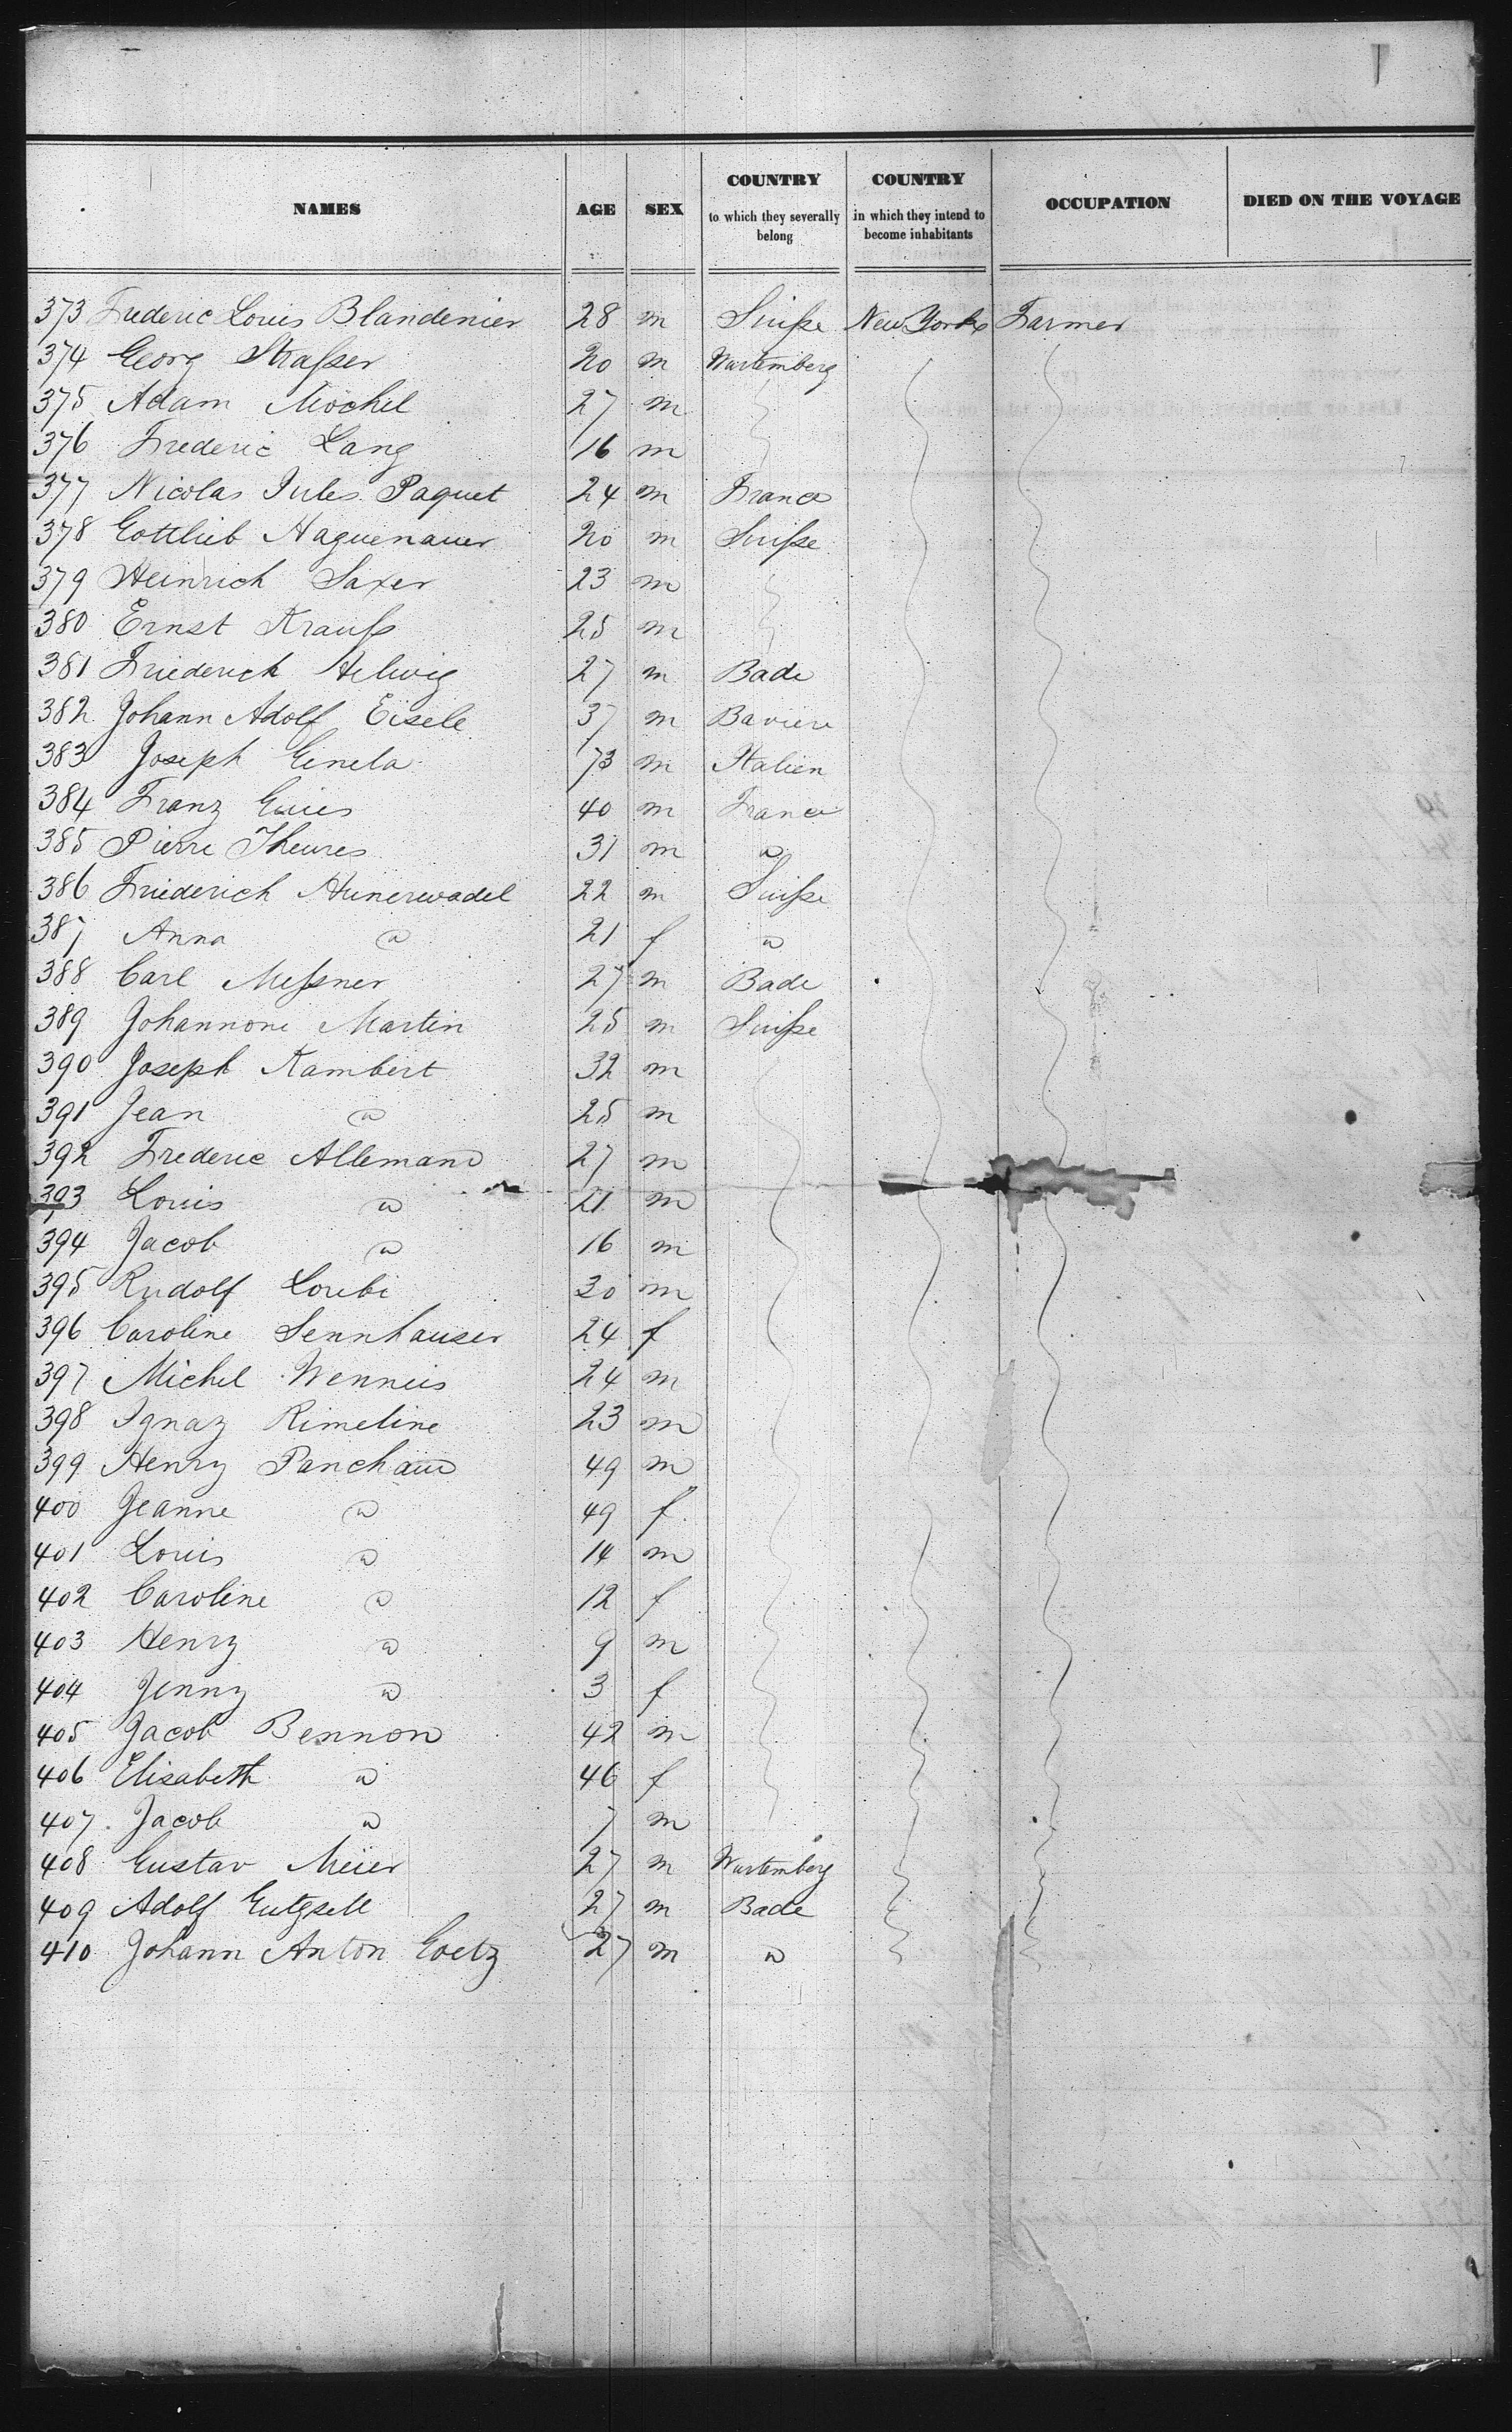 NAMES AGE SEX COUNTRY to which they severally belong COUNTRY in which they intend to become inhabitants OCCUPATION DIED ON THE VOYAGE
373 Frederic Louis Blandenier 28 m Suiſse New York Farmer
374 Georg Straſser 20 m Wurtemberg
375 Adam Möchel 27 m
376 Frederic Lang 16 m
377 Nicolas Jules Paquet 24 m France
378 Gottlieb Haguenauer 20 m Suiſse
379 Heinrich Saxer 23 m
380 Ernst Krauſs 25 m
381 Friederich Helwig 27 m Bade
382 Johann Adolf Eisele 37 m Baviere
383 Joseph 73 m Italien
384 Franz 40 m France
385 Pierre Theures 31 m "
386 Friederich Hunerwadel 22 m Suiſse
387 Anna " 21 f "
388 Carl Meſsner 27 m Bade
389 Johannone Martin 25 m Suiſse
390 Joseph Kambert 32 m
391 Jean " 25 m
392 Frederic Allemand 27 m
393 Louis " 21 m
394 Jacob " 16 m
395 Rudolf 30 m
396 Caroline Sennhauser 24 f
397 Michel Wenneis 24 m
398 Ignaz Rimeline 23 m
399 Henry Panchaud 49 m
400 Jeanne " 49 f
401 Louis " 14 m
402 Caroline " 12 f
403 Henry " 9 m
404 Jenny " 3 f
405 Jacob Bennon 42 m
406 Elisabeth " 46 f
407 Jacob " 7 m
408 Gustav Meier 27 m Wurtemberg
409 Adolf Gutzsell 27 m Bade
410 Johann Anton Goetz 27 m "